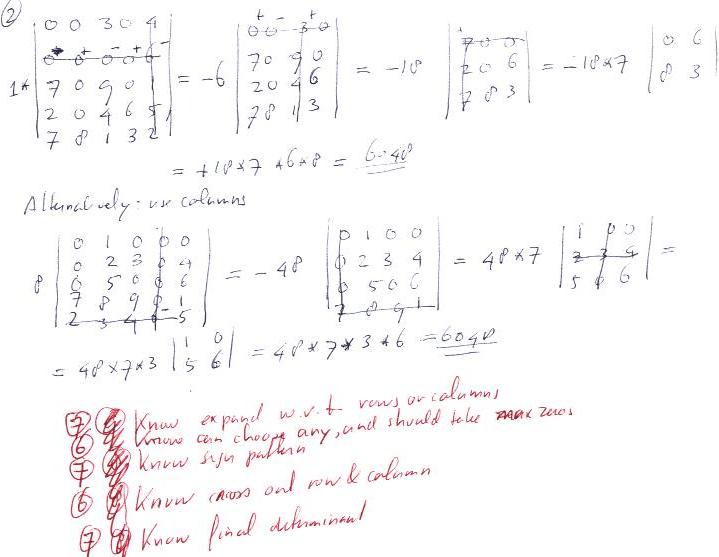 ②
0 0 3 0 4
0 0 0 0 6
1* 7 0 9 0 1 = -6 | 0 0 3 0 | 7 0 9 0 | 2 0 4 6 | 7 8 1 3 | = -18 | 7 0 0 | 2 0 6 | 7 8 3 | = -18*7 | 0 6 | 8 3 |
2 0 4 6 5
7 8 1 3 2
= +18*7*6*8 = 6048
Alternatively: use columns
8 | 0 1 0 0 0 | 0 2 3 0 4 | 0 5 0 0 6 | 7 8 9 0 1 | 2 3 4 6 5 | = -48 | 0 1 0 0 | 0 2 3 4 | 0 5 0 6 | 7 8 9 1 | = 48*7 | 1 0 0 | 2 3 4 | 5 0 6 | =
= 48*7*3 | 1 0 | 5 6 | = 48*7*3*6 = 6048
⑦ Know expand w.r.t rows or columns
⑥ Know can choose any, and should take max zeros
⑦ Know sign pattern
⑥ Know cross out row & column
⑦ Know final determinant